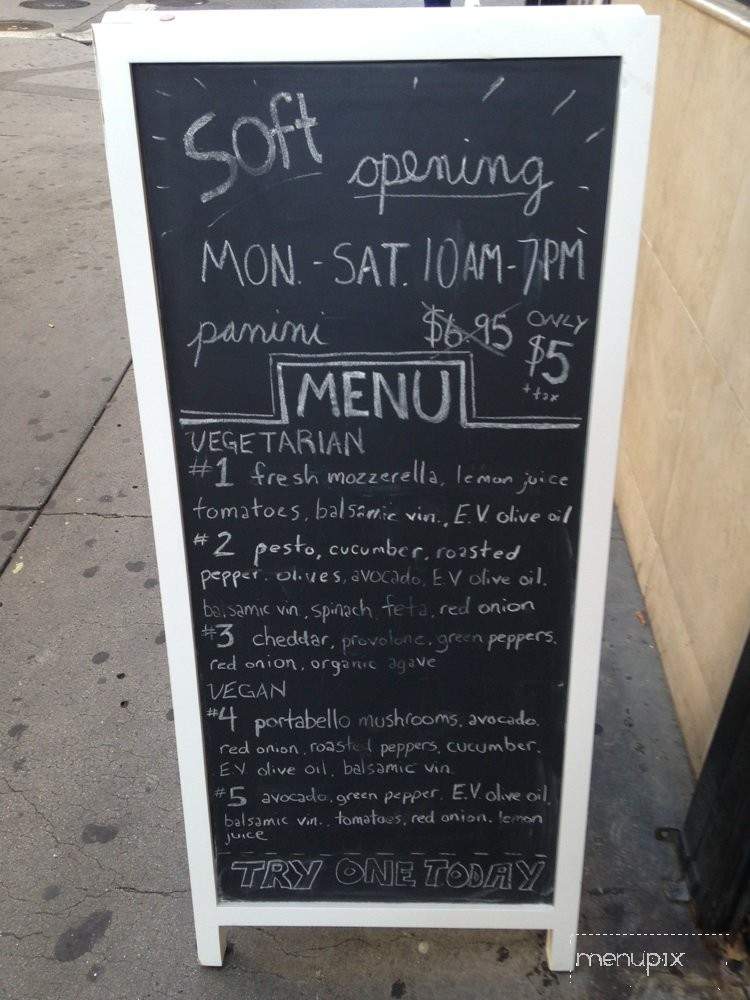 Soft
opening
MON. - SAT. 10AM - 7PM
panini $6.95 ONLY
$5
+tax
MENU
VEGETARIAN
#1 fresh mozzerella, lemon juice
tomatoes, balsamic vin., E.V. olive oil
#2 pesto, cucumber, roasted
pepper. olives, avocado, E.V olive oil.
balsamic vin, spinach, feta, red onion
#3 cheddar, provolone, green peppers.
red onion, organic agave
VEGAN
#4 portabello mushrooms, avocado.
red onion, roasted peppers, cucumber.
E.V. olive oil, balsamic vin
#5 avocado, green pepper. E.V. olive oil.
balsamic vin., tomatoes, red onion. lemon
juice
TRY ONE TODAY
menupix